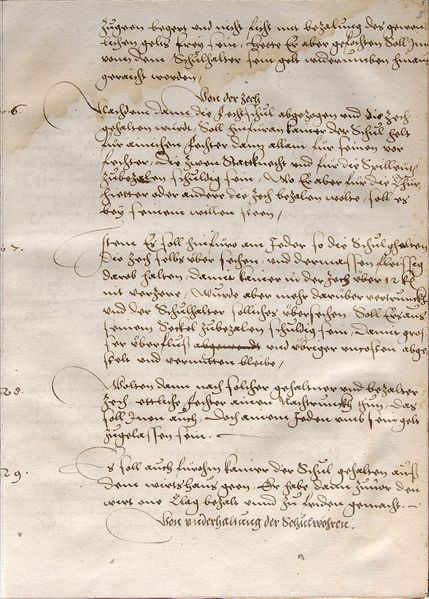 zugeen begert und nicht sich mit bezalung des gewon
lichen gelts frey sein, Hette Er aber gefochten Soll Im
vonn dem Schulhalter sein gelt widerumben hinaus
geraicht werden,
Von der zech
26
Nachdem dann die Fechtschul abgezogen und die zech
gehalten wirdt, Soll hinfüran kainer der Schul helt
für ainichen Fechter dann allain für seinen vor
fechter, die zwen Stattknecht und für die Spilleut
zubezalen schuldig sein, Wo Er aber für die
hietter oder andere die zech bezalen wolte, soll es
bey seinem willen steen,
27.
Item Es soll hinfüro ain Jeder so die Schul gehalten
die zech selbs über sehen, und dermassen fleissig
darob halten, damit kainer in der zech über 12 kr
nit verzere, Wurde aber mehr darüber vertruncken
und der Schulhalter solliches übersehen Soll Er aus
seinem Seckel zubezalen schuldig sein, damit gros
ser überfluß und übriger uncosten abge
stelt und vermitten bleibe,
28.
Wolten dann nach solcher gehaltner und bezalter
zech ettliche Fechter ainen Nachtrunckh thun, das
soll Inen auch, doch ainem Jeden umb sein gelt
zugelassen sein.
29.
Es soll auch fürohin kainer der Schul gehalten aus
dem wirtshaus geen, Er habe dann zuvor den
wirt one Clag bezalt unnd zu friden gemacht.
Von underhaltung der Schulwöhren.